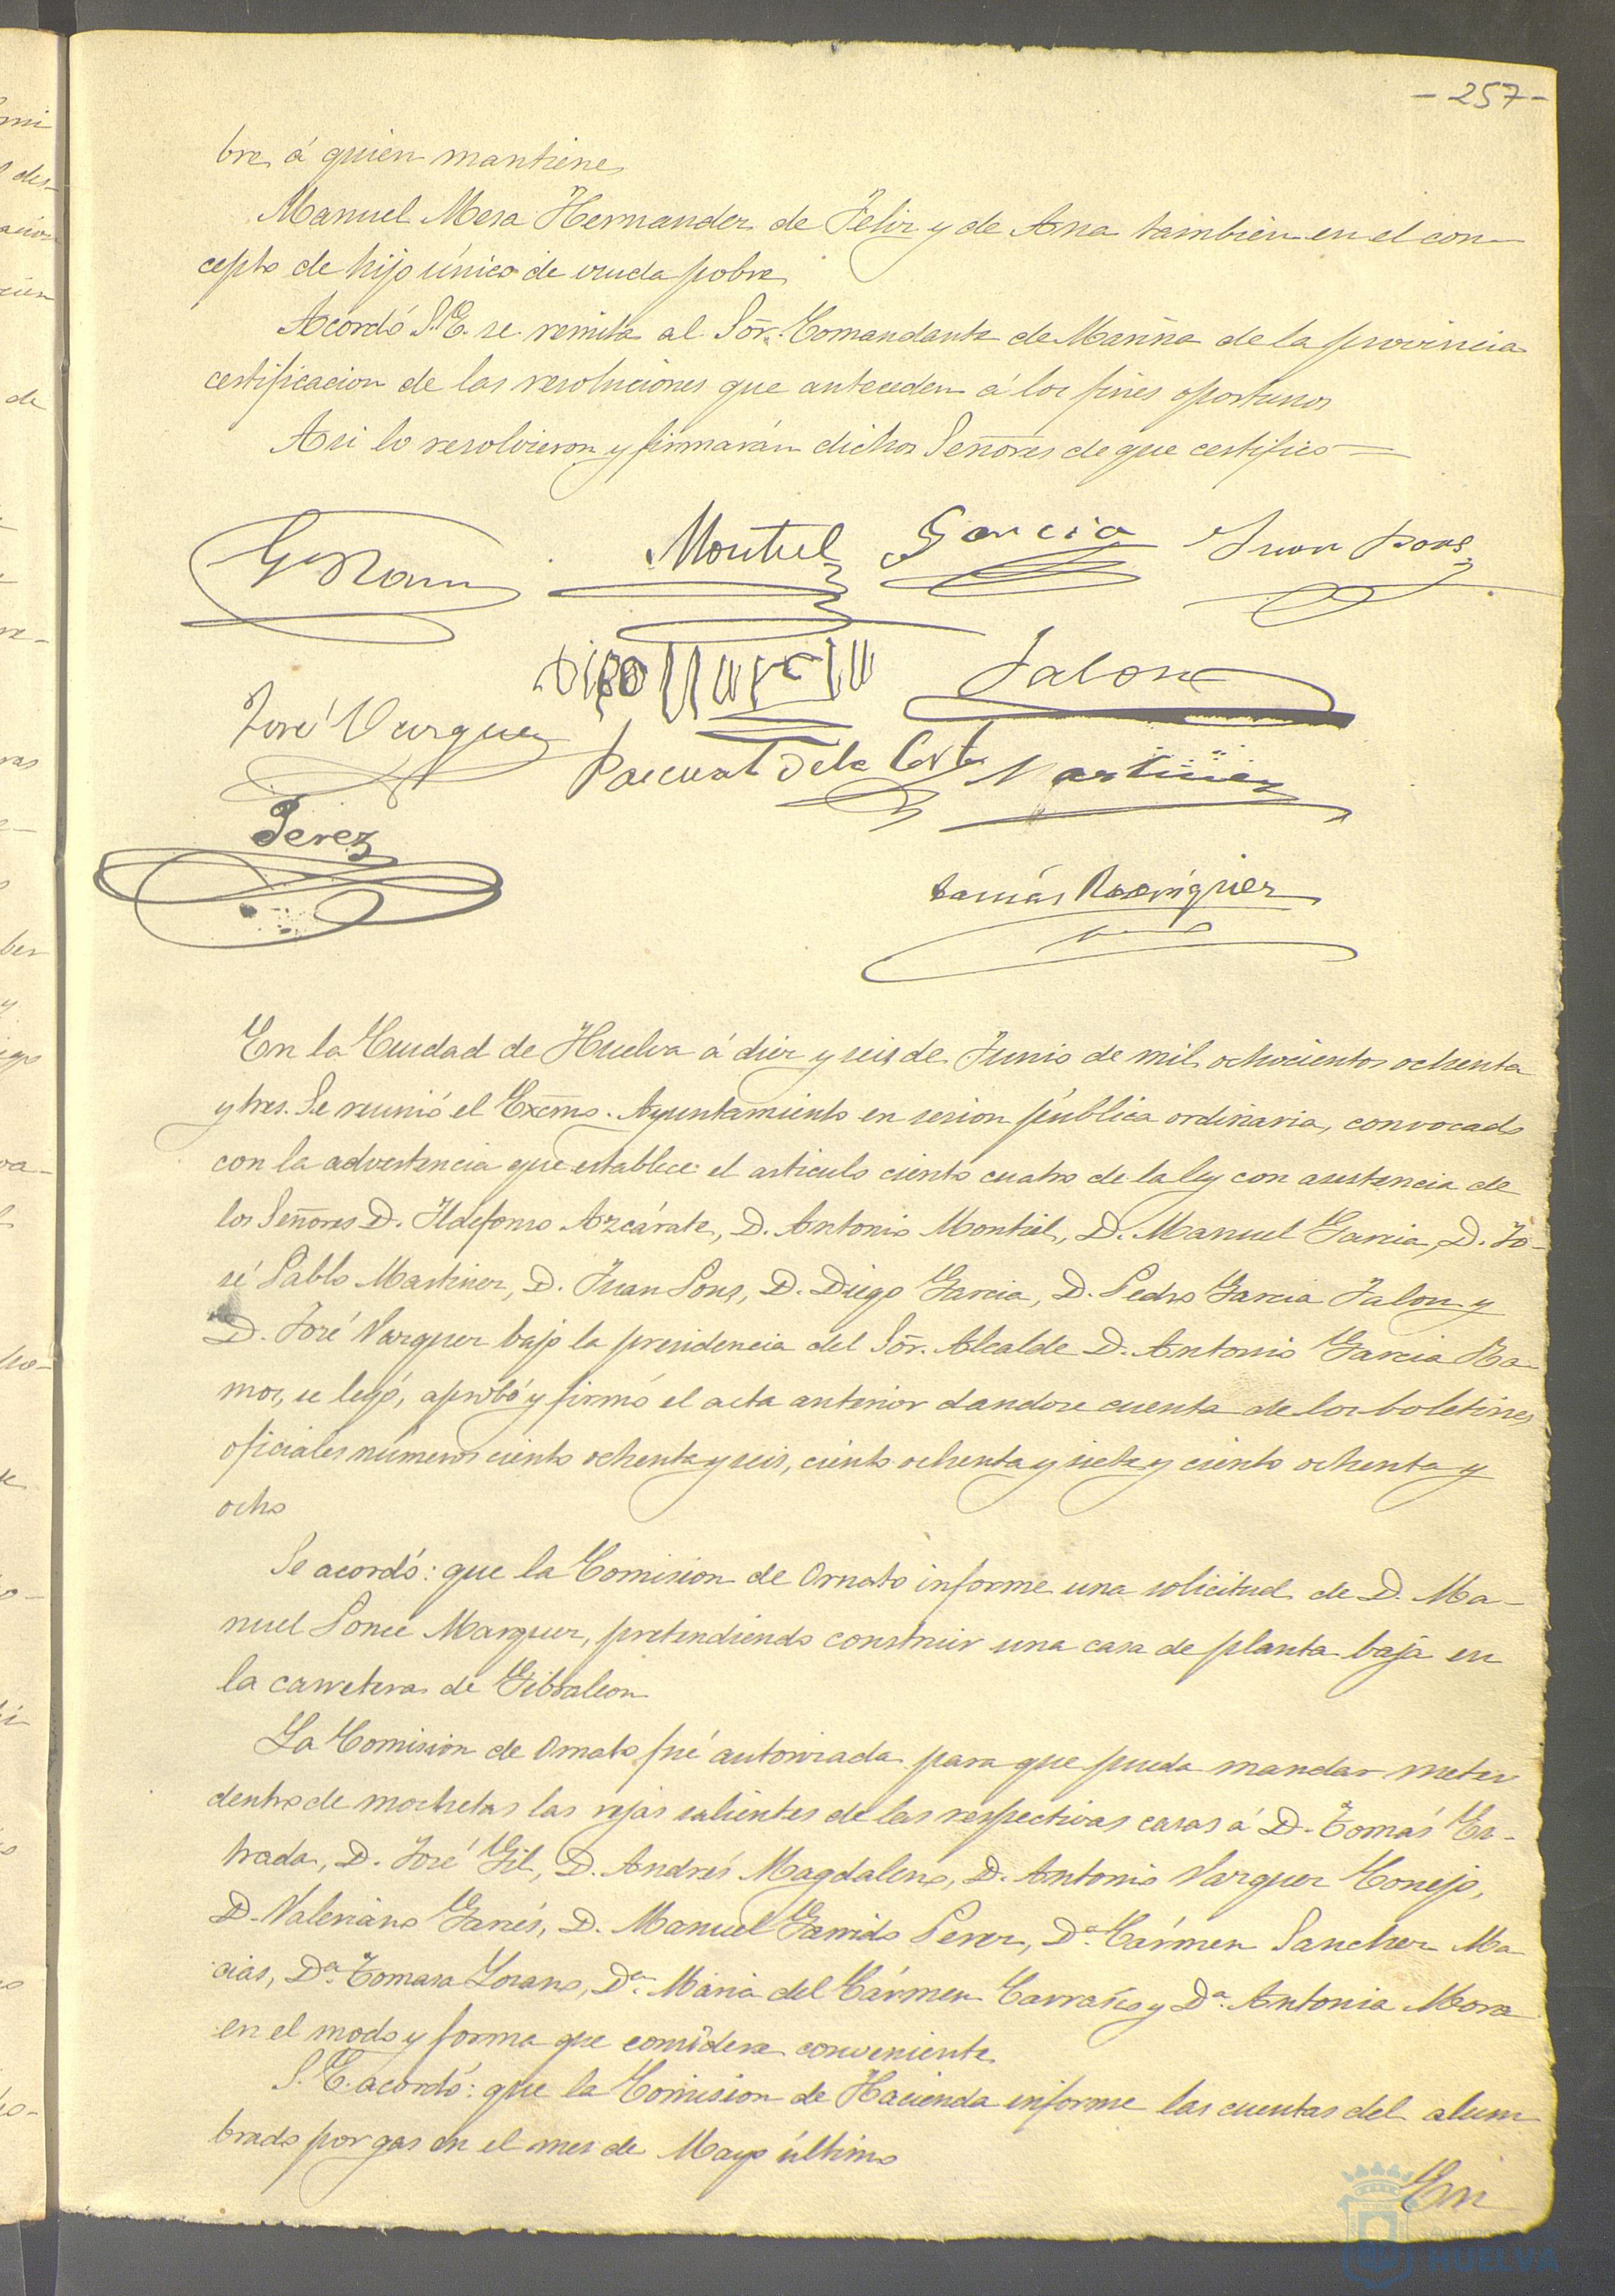 - 257 -
bre á quien mantiene
Manuel Mesa Hernandez de Felix y de Ana tambien en el con-
cepto de hijo único de viuda pobre
Acordó S.E. se remita al Sōr. Comandante de Marina de la provincia
certificacion de las resoluciones que anteceden á los fines oportunos
Asi lo resolvieron y firmarán dichos Señores de que certifico =
G Ram
Montiel
Garcia
Juan Pons
Diego Garcia
Jalon
José Vazquez
Pascual de la Corte
Martinez
Perez
Tomás Rodriguez
En la Ciudad de Huelva á diez y seis de Junio de mil ochocientos ochenta
y tres. Se reunió el Excmo. Ayuntamiento en sesion pública ordinaria, convocado
con la advertencia que establece el articulo ciento cuatro de la ley con asistencia de
los Señores D. Ildefonso Azcárate, D. Antonio Montiel, D. Manuel Garcia, D. Jo-
sé Pablo Martinez, D. Juan Pons, D. Diego Garcia, D. Pedro Garcia Jalon y
D. José Vazquez bajo la presidencia del Sōr. Alcalde D. Antonio Garcia Ra-
mos, se leyó, aprobó y firmó el acta anterior dandose cuenta de los boletines
oficiales números ciento ochenta y seis, ciento ochenta y siete y ciento ochenta y
ocho
Se acordó: que la Comision de Ornato informe una solicitud de D. Ma-
nuel Ponce Marquez, pretendiendo construir una casa de planta baja en
la carretera de Gibraleon
La Comision de Ornato fué autorizada para que pueda mandar meter
dentro de mochetas las rejas salientes de las respectivas casas á D. Tomás Es-
trada, D. José Gil, D. Andrés Magdaleno, D. Antonio Vazquez Conejo,
D. Valeriano Garcés, D. Manuel Garrido Perez, D.ª Cármen Sanchez Ma
cias, D.ª Tomasa Lozano, D.ª Maria del Cármen Carrasco y D.ª Antonia Mora
en el modo y forma que considere conveniente
S.E. acordó: que la Comision de Hacienda informe las cuentas del alum
brado por gas en el mes de Mayo último
En
HUELVA